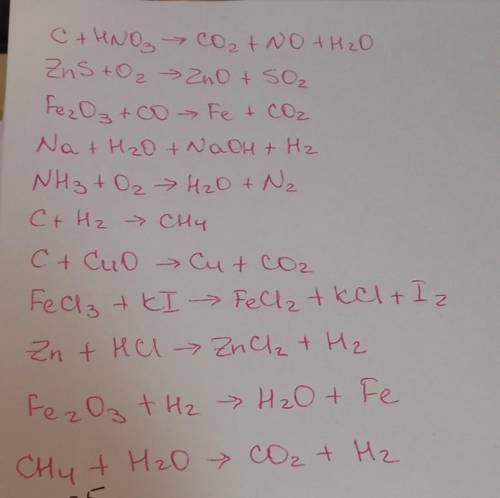 C + HNO₃ → CO₂ + NO + H₂O
ZnS + O₂ → ZnO + SO₂
Fe₂O₃ + CO → Fe + CO₂
Na + H₂O + NaOH + H₂
NH₃ + O₂ → H₂O + N₂
C + H₂ → CH₄
C + CuO → Cu + CO₂
FeCl₃ + KI → FeCl₂ + KCl + I₂
Zn + HCl → ZnCl₂ + H₂
Fe₂O₃ + H₂ → H₂O + Fe
CH₄ + H₂O → CO₂ + H₂